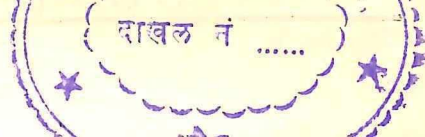 दाखल नं ......